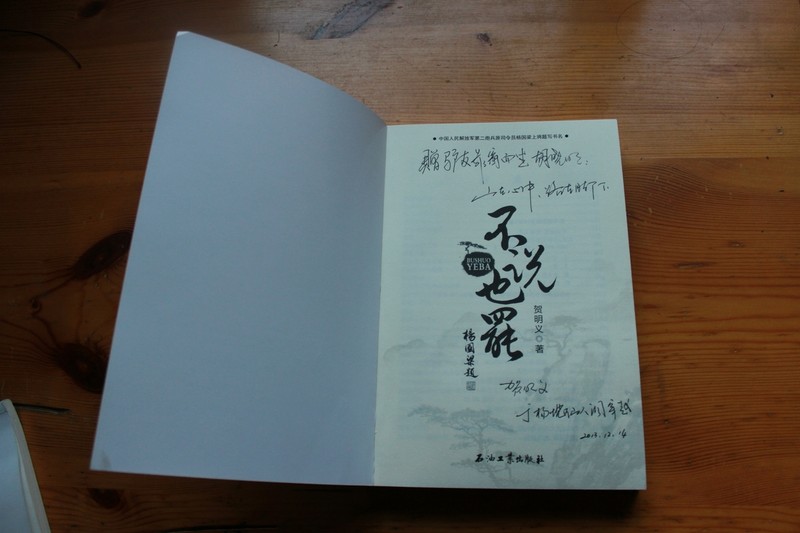 ● 中国人民解放军第二炮兵原司令员杨国梁上将题写书名 ●
赠驴友 胡晓
山在心中、路在脚下
不说也罢
BUSHUO
YEBA
贺明义◎著
杨国梁题
贺明义
于杨
2013.12.14
石油工业出版社